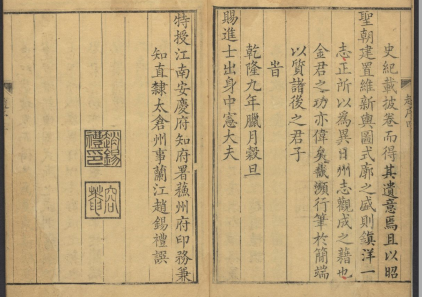 史紀載披卷而得其遺意焉且以昭
聖朝建置維新輿圖式廓之盛則鎮洋一
志正所以為異日州志觀成之藉也
金君之功亦偉矣哉瀕行筆於簡端
以質諸後之君子
旹
乾隆九年臘月穀旦
賜進士出身中憲大夫
特授江南安慶府知府署蘇州府印務兼
知直隸太倉州事蘭江趙錫禮譔
趙錫禮印